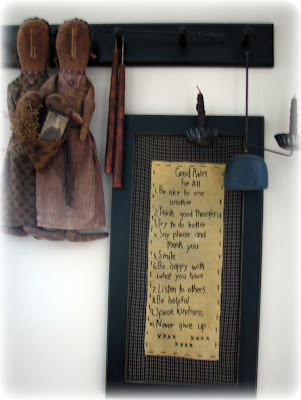 Good Rules
for All
1. Be nice to one
another
2. Think good thoughts
3. Try to do better
4. Say please and
thank you
5. Smile
6. Be happy with
what you have
7. Listen to others
8. Be helpful
9. Speak kindness
10. Never give up
xxxx xxxx
xxxx